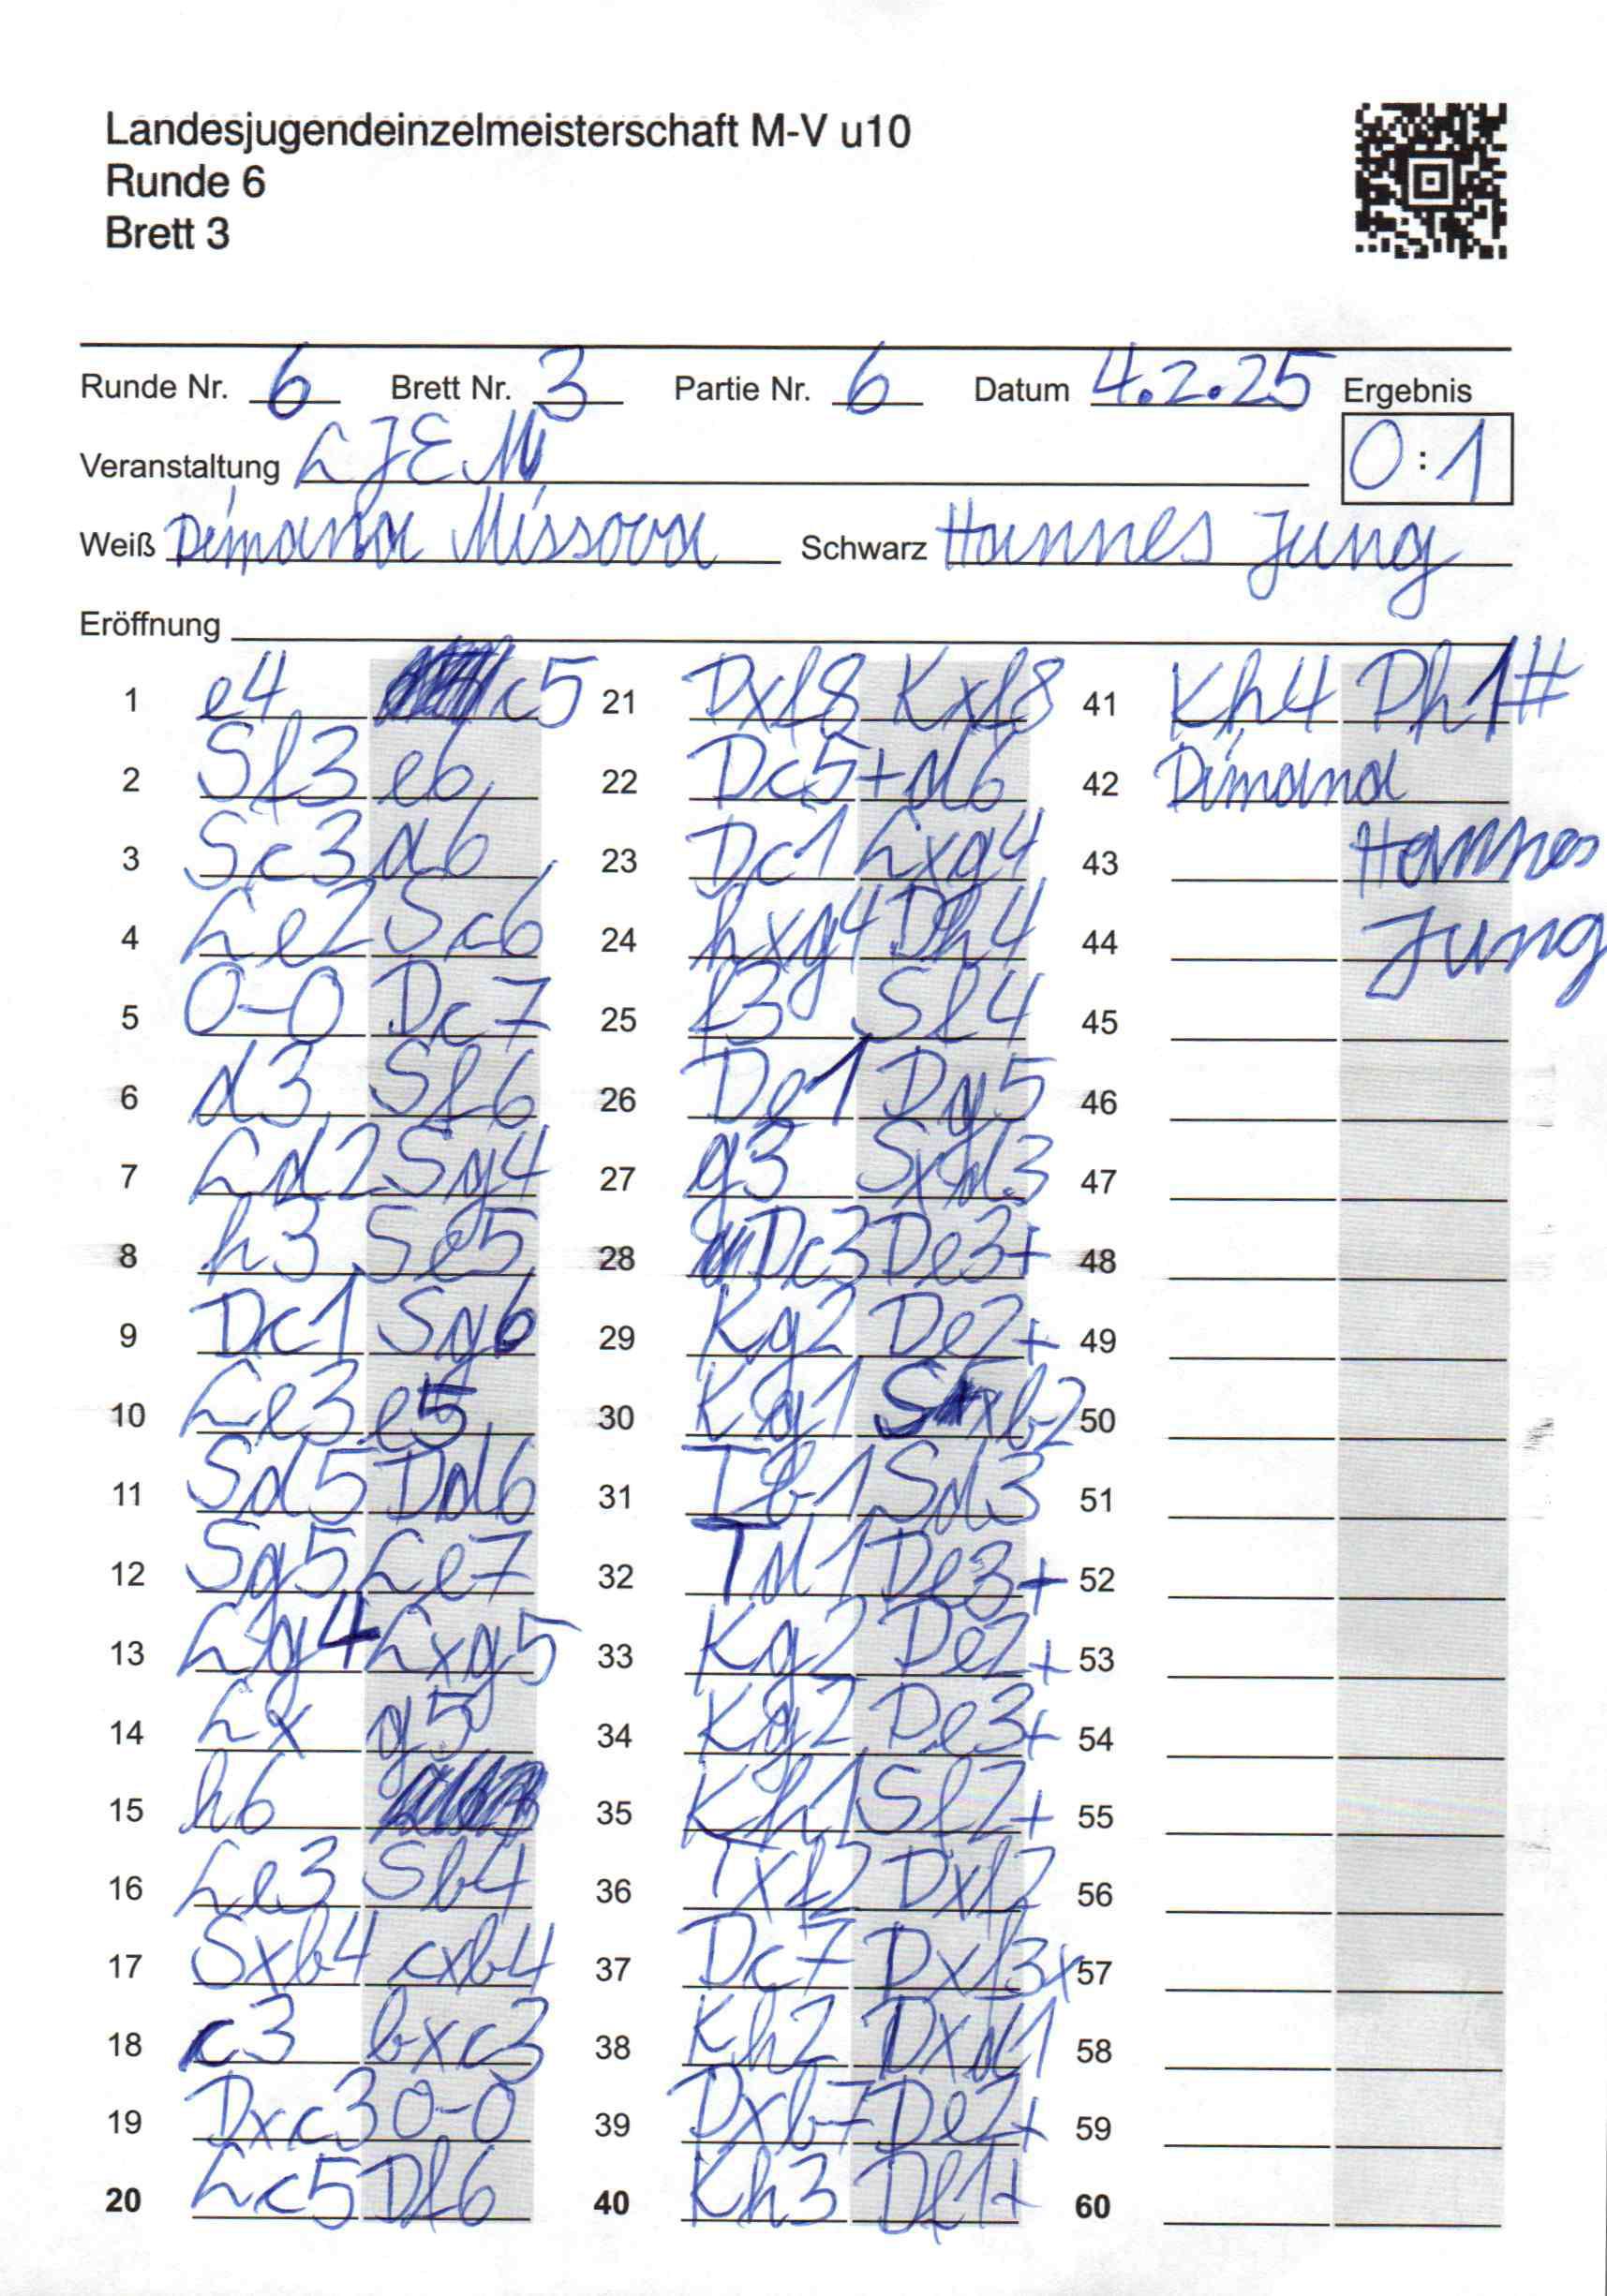 Landesjugendeinzelmeisterschaft M-V u10
Runde 6
Brett 3
Runde Nr. 6 Brett Nr. 3 Partie Nr. 6 Datum 4.2.25 Ergebnis
Veranstaltung LJEM 0:1
Weiß Dimana Missova Schwarz Hannes Jung
Eröffnung
1 e4 c5 21 Dxf8 Kxf8 41 Kh4 Dh1#
2 Sf3 e6 22 Dc5+ d6 42 Dimana
3 Sc3 d6 23 Dc1 Lxg4 43 Hannes
4 Le2 Sc6 24 hxg4 Dh4 44 Jung
5 0-0 Dc7 25 f3 Sf4 45
6 d3 Sf6 26 De1 Dg5 46
7 Ld2 Sg4 27 g3 Sxd3 47
8 h3 Se5 28 Dc3 De3+ 48
9 Dc1 Sg6 29 Kg2 De2+ 49
10 Le3 e5 30 Kg1 Sxb2 50
11 Sd5 Dd6 31 Tb1 Sd3 51
12 Sg5 Le7 32 Td1 De3+ 52
13 Lg4 Lxg5 33 Kg2 De2+ 53
14 Lx g5 34 Kg2 De3+ 54
15 h6 35 Kh1 Sf2+ 55
16 Le3 Sb4 36 Txf2 Dxf2 56
17 Sxb4 cxb4 37 Dc7 Dxf3x 57
18 c3 bxc3 38 Kh2 Dxd1 58
19 Dxc3 0-0 39 Dxb7 De2+ 59
20 Lc5 Df6 40 Kh3 Df1+ 60